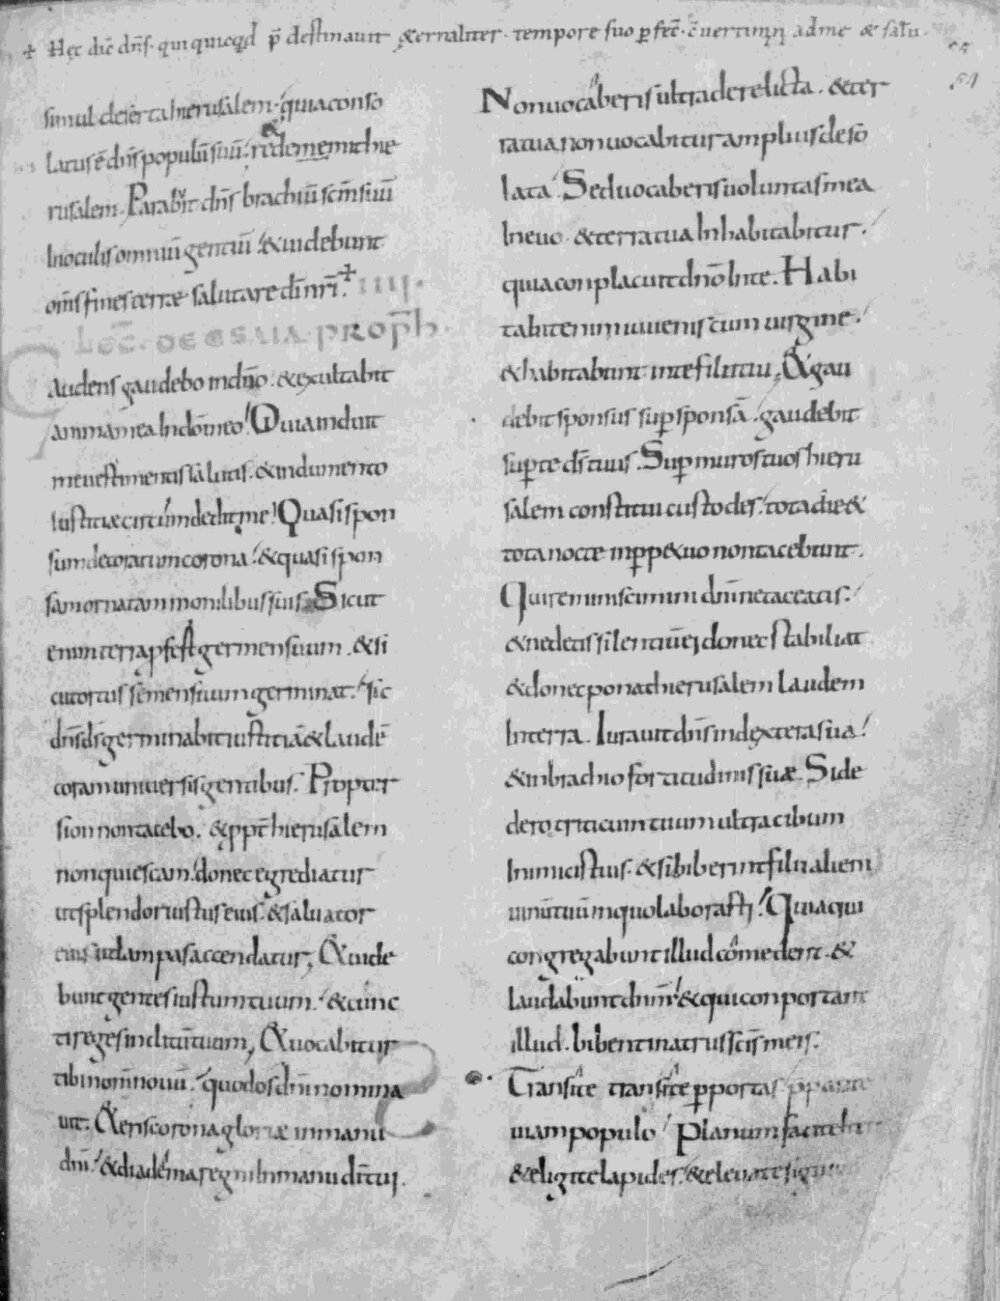 + Hęc dic̄ dn̄s. qui quicqd p̄destinauit & ernaliter. tempore suo ꝑfec̄. c̄uertimiñ ad me & salu.
simul deserta hierusalem. quia conso
latus ē dn̄s populū suū. redemit hie
rusalem. Parabit dn̄s brachiū sc̄m suū
In oculis omniū gentiū. & uidebunt
om̄s fines terrae salutare dī nr̄i. + IIII.
Lec̄. DE ESAIA PROPH.
Gaudens gaudebo in dn̄o. & exultabit
anima mea In dō meo. Quia induit
me uestimentis salutis. & indumento
Iustitiae circumdedit me. Quasi spon
sum decoratum corona. & quasi spon
sam ornatam monilibus suis. Sicut
enim terra ꝓfert germen suum. & si
cut ortus semen suum germinat. sic
dn̄s ds̄ germinabit iustitiā & laudē
coram uniuersis gentibus. Propter
sion non tacebo. & ppt̄ hierusalem
non quiescam. donec egrediatur
ut splendor iustus eius. & saluator
eius ut lampas accendatur. & uide
bunt gentes iustum tuum. & cunc
ti reges inclitū tuum, & uocabitur
tibi nom̄ nouū. quod os dn̄i nomina
uit. & eris corona gloriae in manu
dn̄i. & diadema regni In manu dī tui.
Non uocaberis ultra derelicta. & ter
ra tua non uocabitur amplius deso
lata. Sed uocaberis uoluntas mea
In ea. & terra tua Inhabitabitur.
quia conplacuit dn̄o In te. Habi
tabit enim iuuenis cum uirgine.
& habitabunt in te filii tui, & gau
debit sponsus suꝑ sponsā. gaudebit
suꝑ te ds̄ tuus. Suꝑ muros tuos hieru
salem constitui custodes. tota die &
tota nocte in ꝑp&uo non tacebunt.
Qui reminiscimini dn̄i ne taceatis.
& ne detis silentiū ei donec stabiliat
& donec ponat hierusalem laudem
In terra. Iurauit dn̄s in dextera sua.
& in brachio fortitudinis suae. Si de
dero triticum tuum ultra cibum
Inimicis tuis. & si biberint filii alieni
uinū tuū in quo laborasti. Quia qui
congregabunt illud comedent. &
laudabunt dn̄m. & qui conportant
illud. bibent in atriis sc̄is meis.
Transite transite ꝑ portas pparate
uiam populo. Planum facite Iter
& eligite lapides. & eleuate signum